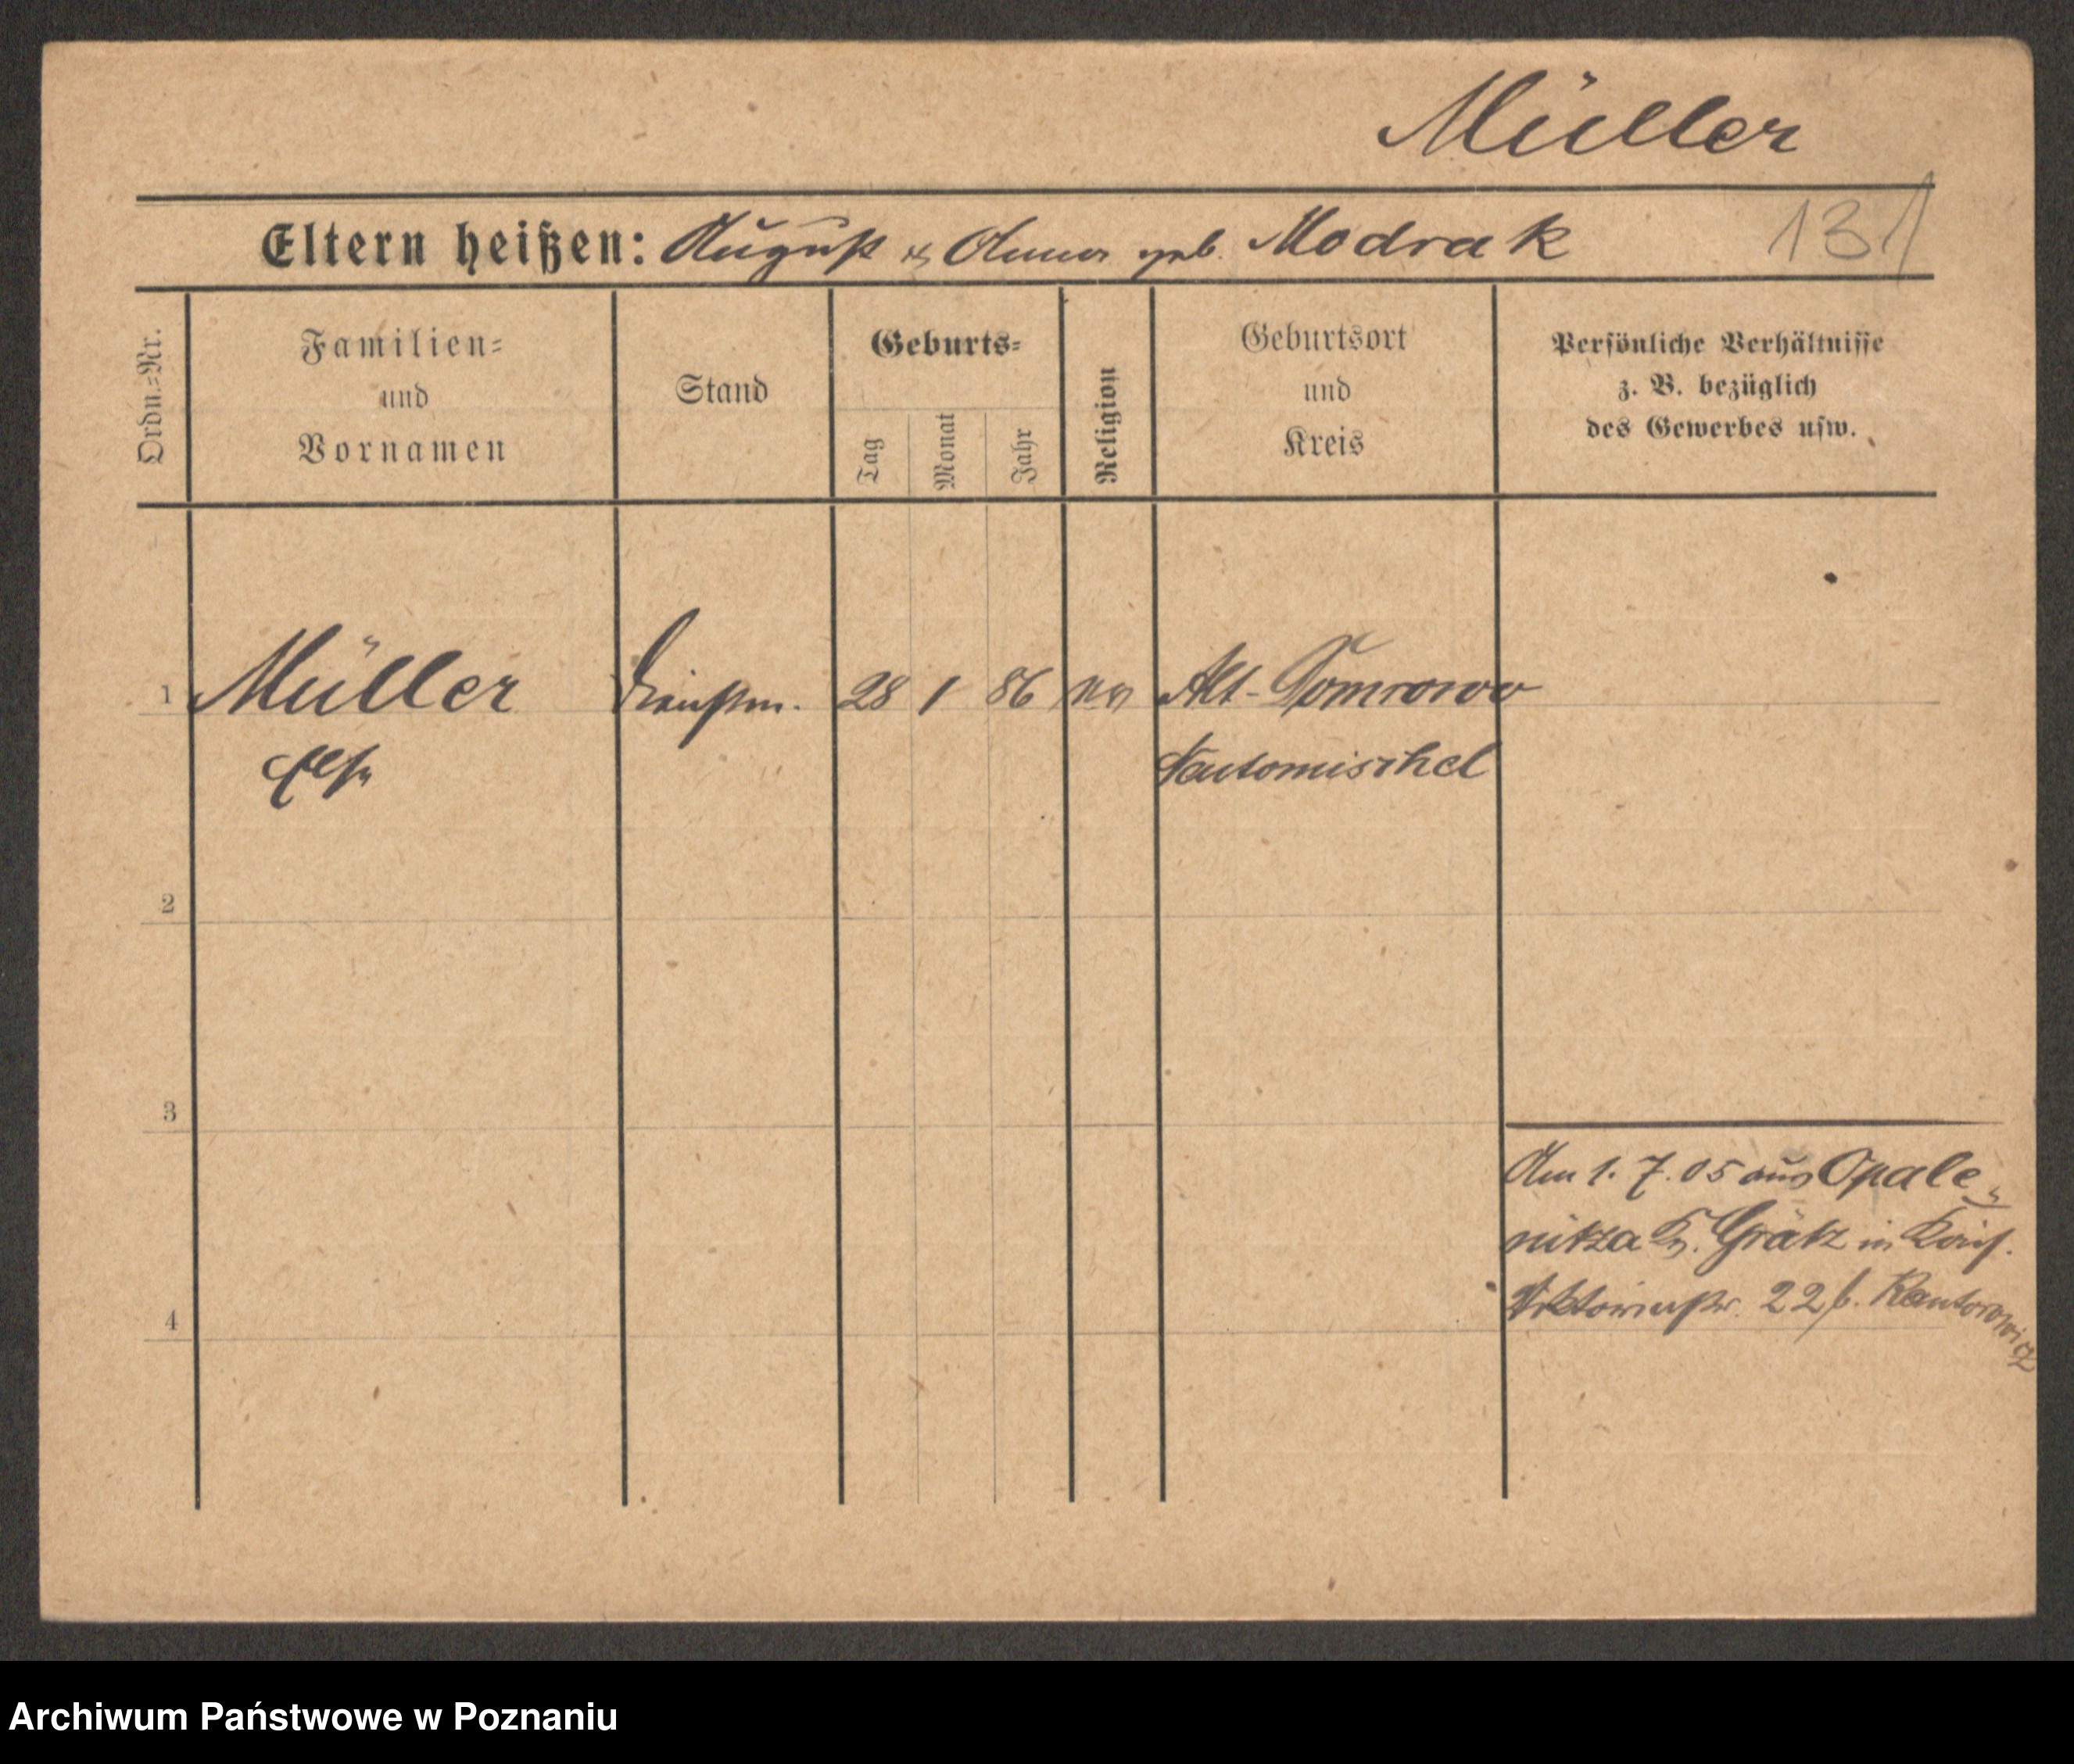 Müller
Eltern heißen: August & Anna geb. Modrak
131
Ordn.=Nr.
Familien=
und
Vornamen
Stand
Geburts=
Tag
Monat
Jahr
Religion
Geburtsort
und
Kreis
Persönliche Verhältnisse
z. B. bezüglich
des Gewerbes usw.
1 Müller Dienstm. 28 1 86 ev Alt-Tomrowo
Neutomischel
2
3
4
Am 1. 7. 05 aus Opale=
nitza Kr. Grätz in
Viktoriastr. 22 b. Kantorowicz
Archiwum Państwowe w Poznaniu